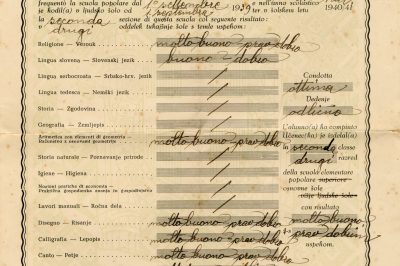 frequentò la scuola popolare dal 1º settembre 1939 nell'anno scolastico 1940/41
je hodil(a) v ljudsko šolo od 1. septembra v šolskem letu
la seconda sezione di questa scuola col seguente risultato:
drugi oddelek tukajšnje šole s temle uspehom:
Religione - Verouk molto buono - prav dobro
Lingua slovena - Slovenski jezik buono - dobro
Lingua serbocroata - Srbsko-hrv. jezik /
Condotta
Lingua tedesca - Nemški jezik /
ottima
Dedenje
Storia - Zgodovina /
odlično
Geografia - Zemljepis /
L'alunno(a) ha compiuto
Aritmetica con elementi di geometria molto buono - prav dobro
Učenec(ka) je izdelal(a)
Računstvo z geometrijo
la seconda classe
Storia naturale - Poznavanje prirode /
drugi razred
della scuola elementare
Igiene - Higiena /
popolare superiore
Nozioni pratiche di economia
osnovne šole
Praktična znanja gospodinjstva
višje ljudske šole
Lavori manuali - Ročna dela /
con risultato
Disegno - Risanje molto buono - prav dobro
molto buono
Calligrafia - Lepopis molto buono - prav dobro
prav dobrim
uspehom.
Canto - Petje molto buono - prav dobro